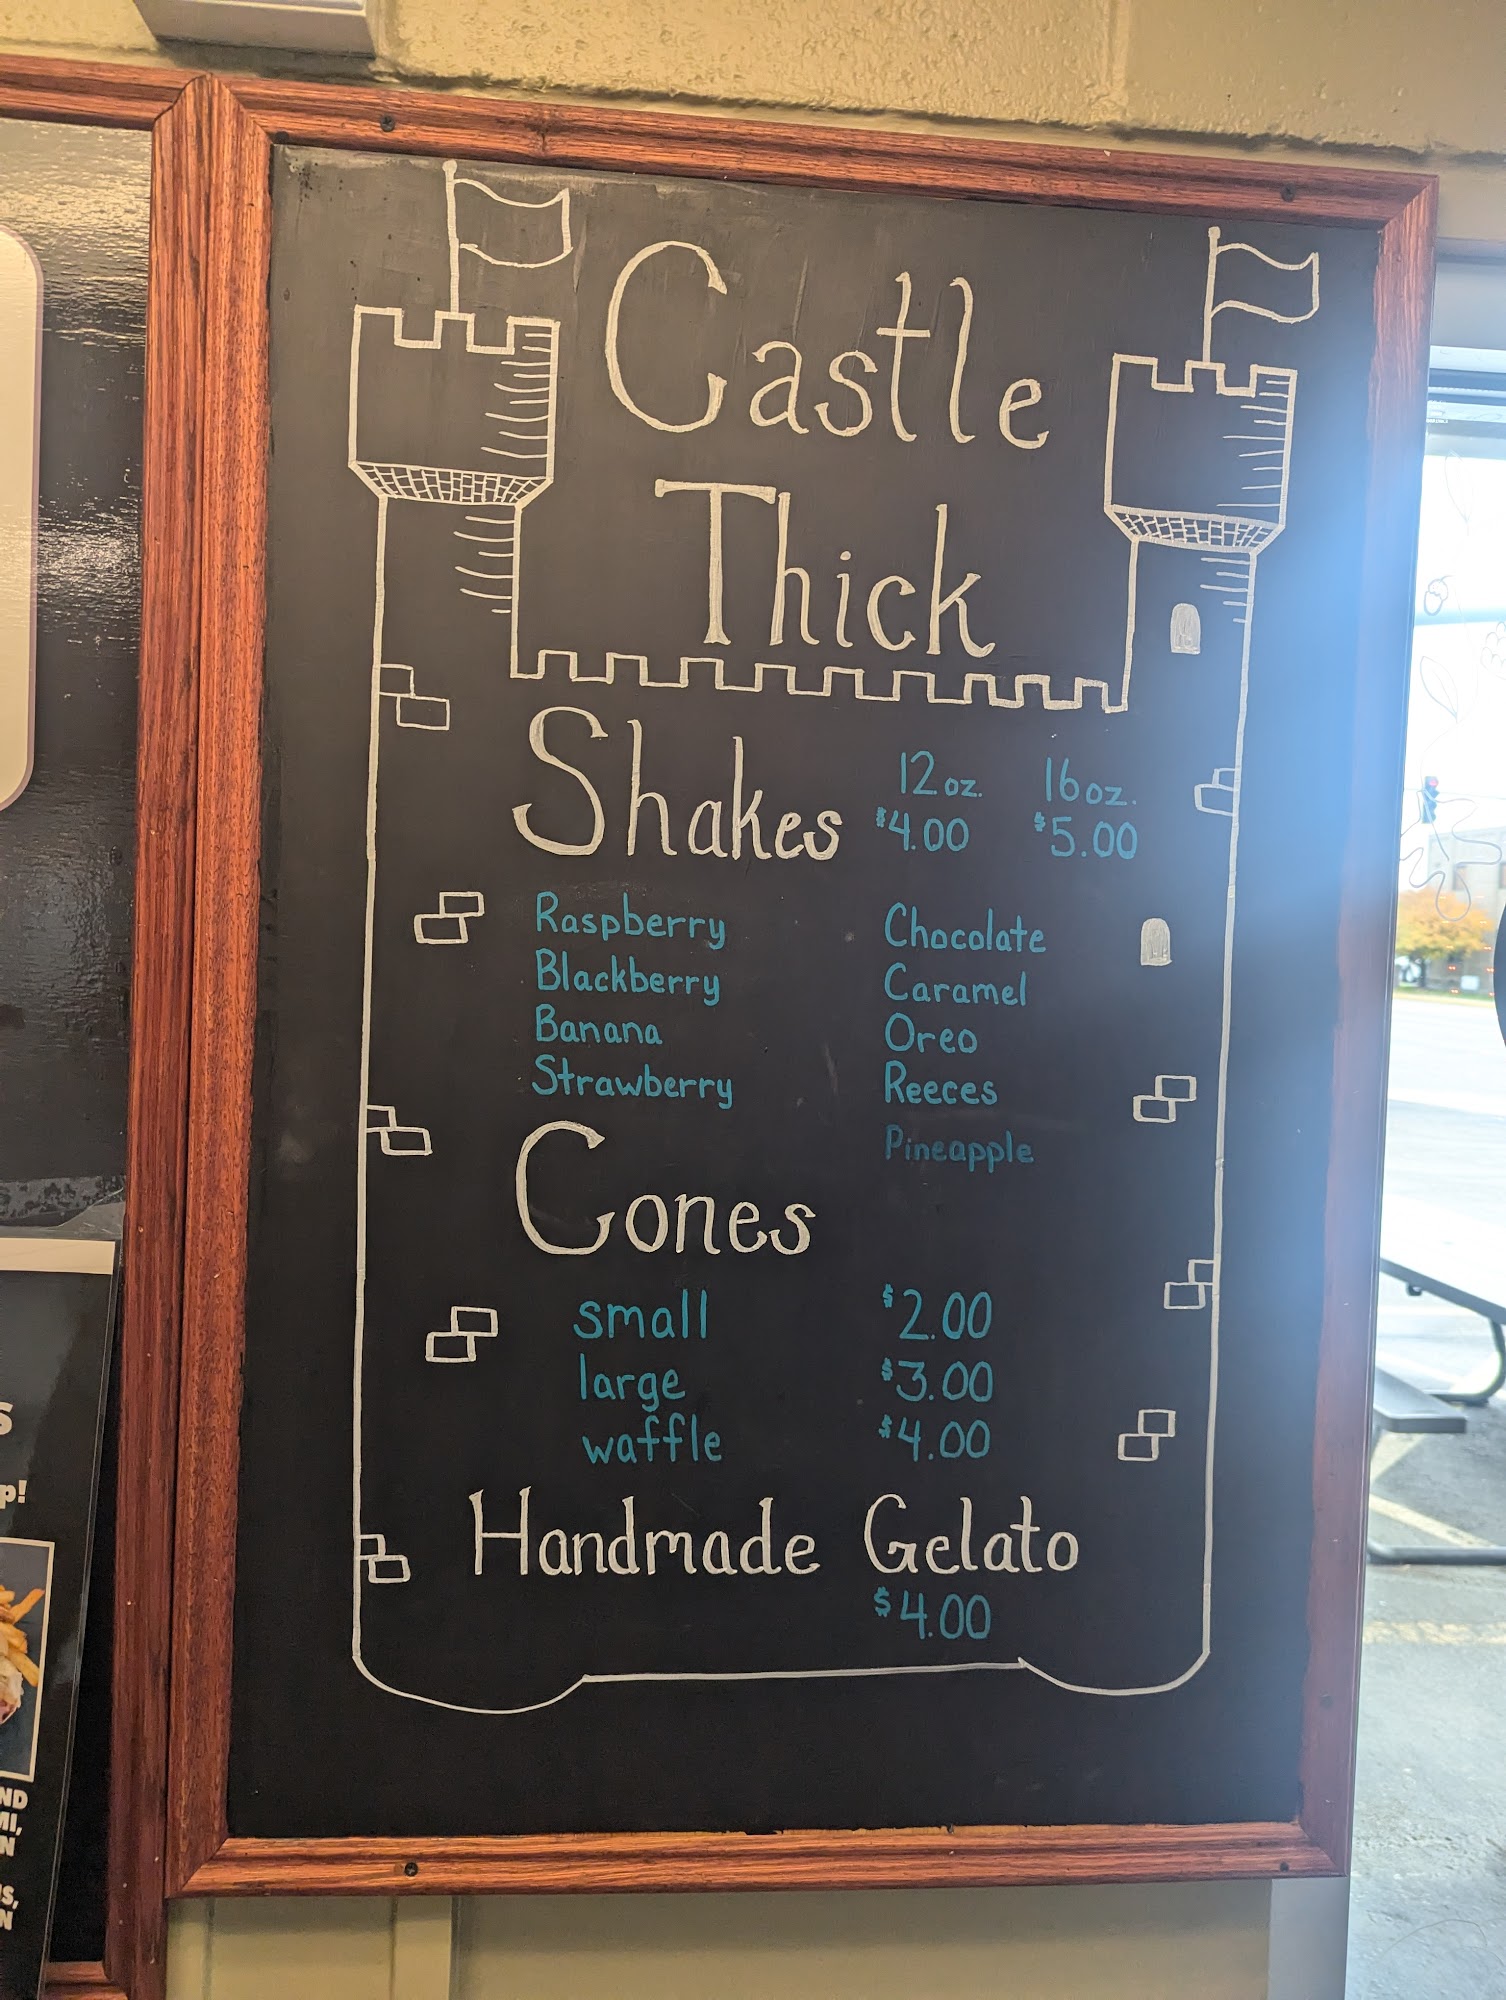 Castle
Thick
Shakes
12 oz. 16 oz.
$4.00 $5.00
Raspberry Chocolate
Blackberry Caramel
Banana Oreo
Strawberry Reeces
Pineapple
Cones
small $2.00
large $3.00
waffle $4.00
Handmade Gelato
$4.00
S
p!
ND
MI,
N
S,
N